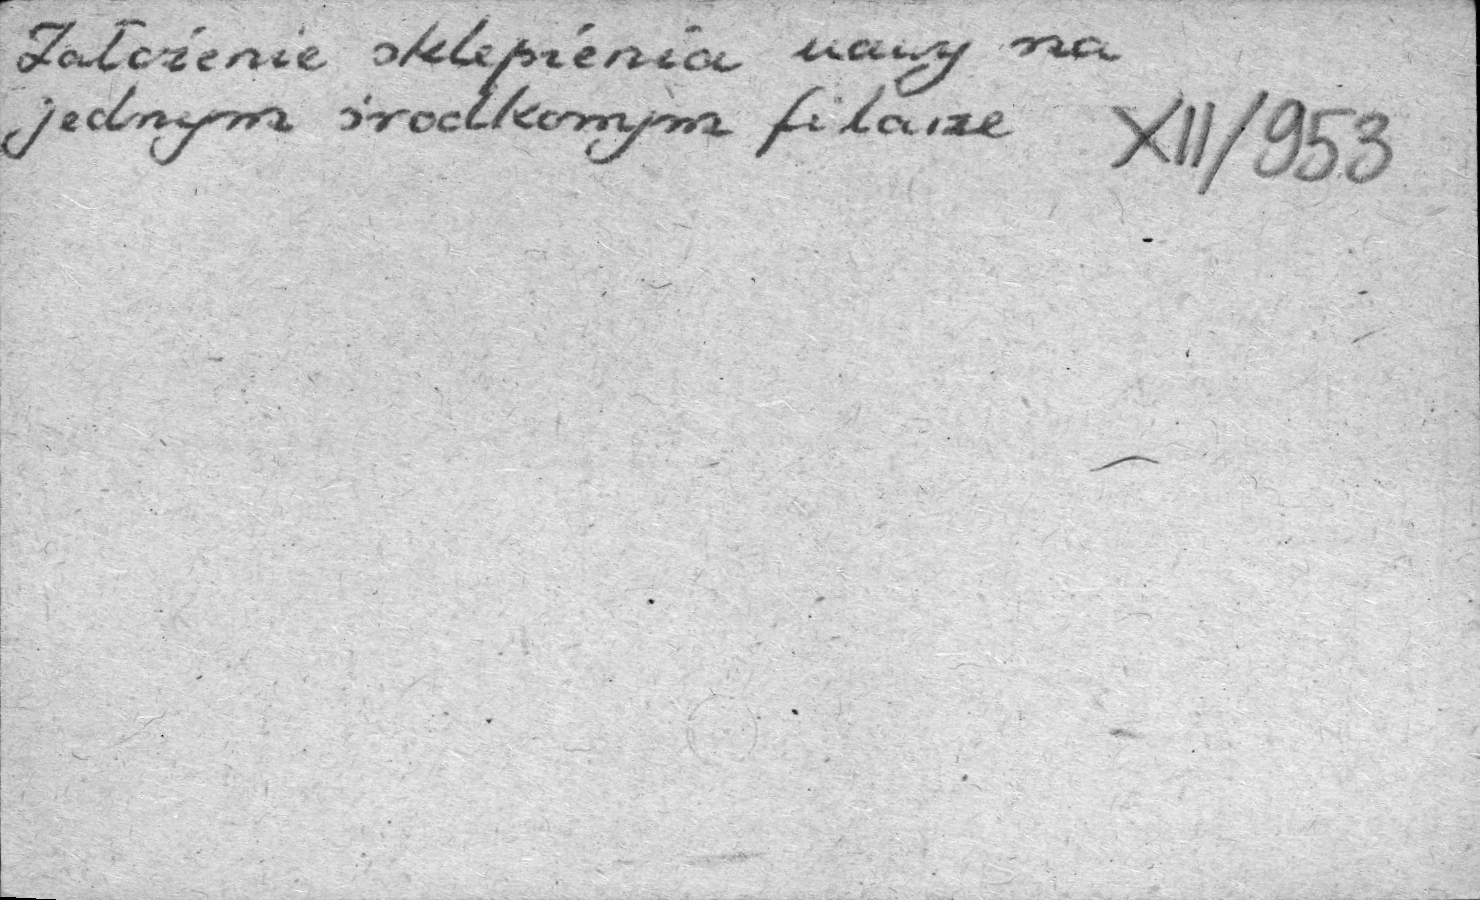 Założenie sklepienia nawy na
jednym środkowym filarze XII/953